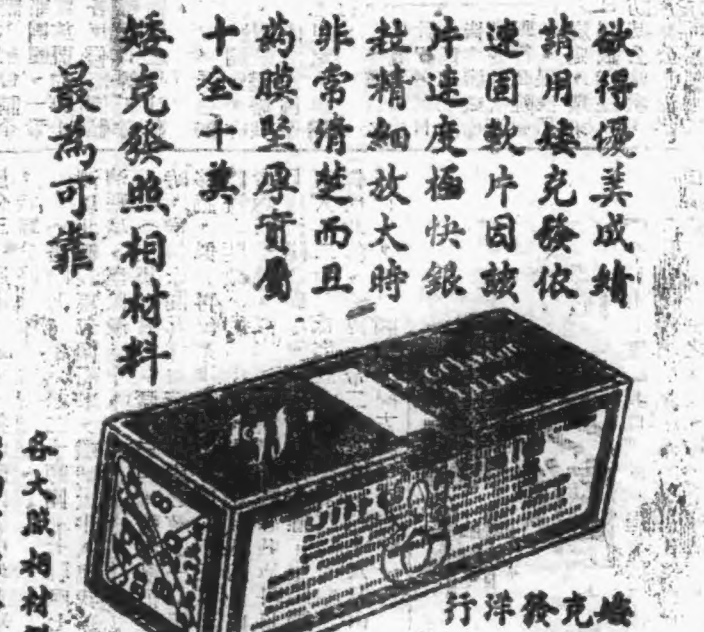 欲得優美成績
請用矮克發依
速固軟片因該
片速度極快銀
粒精細放大時
非常清楚而且
葯膜堅厚實屬
十全十美
矮克發照相材料
最為可靠
各大照相材
矮克發洋行